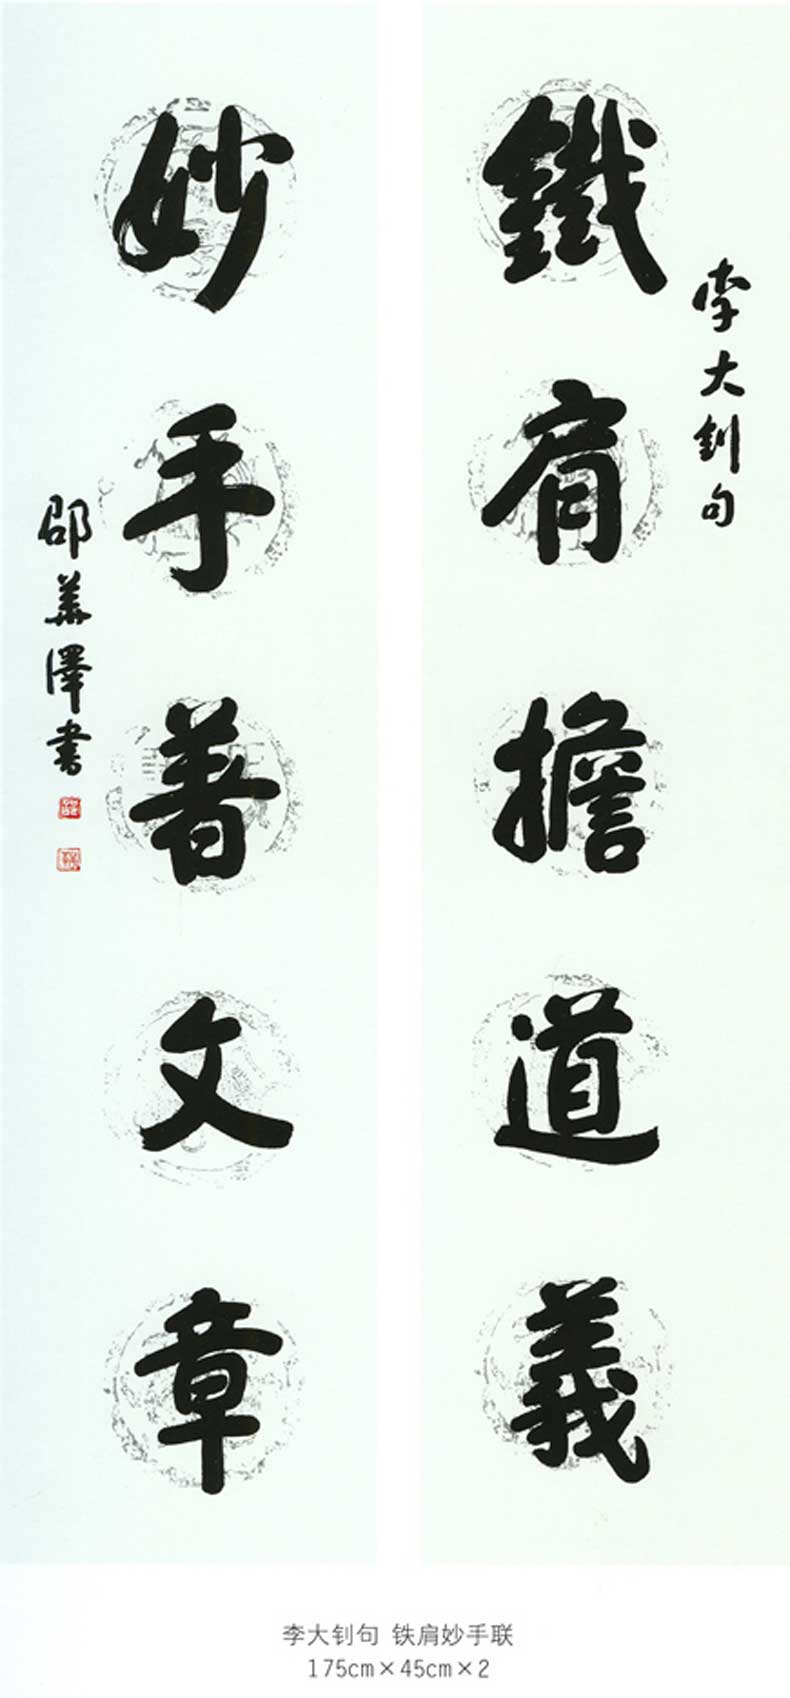 李大钊句
鐵肩擔道義
妙手著文章
邵華澤書
李大钊句 铁肩妙手联
175cm×45cm×2